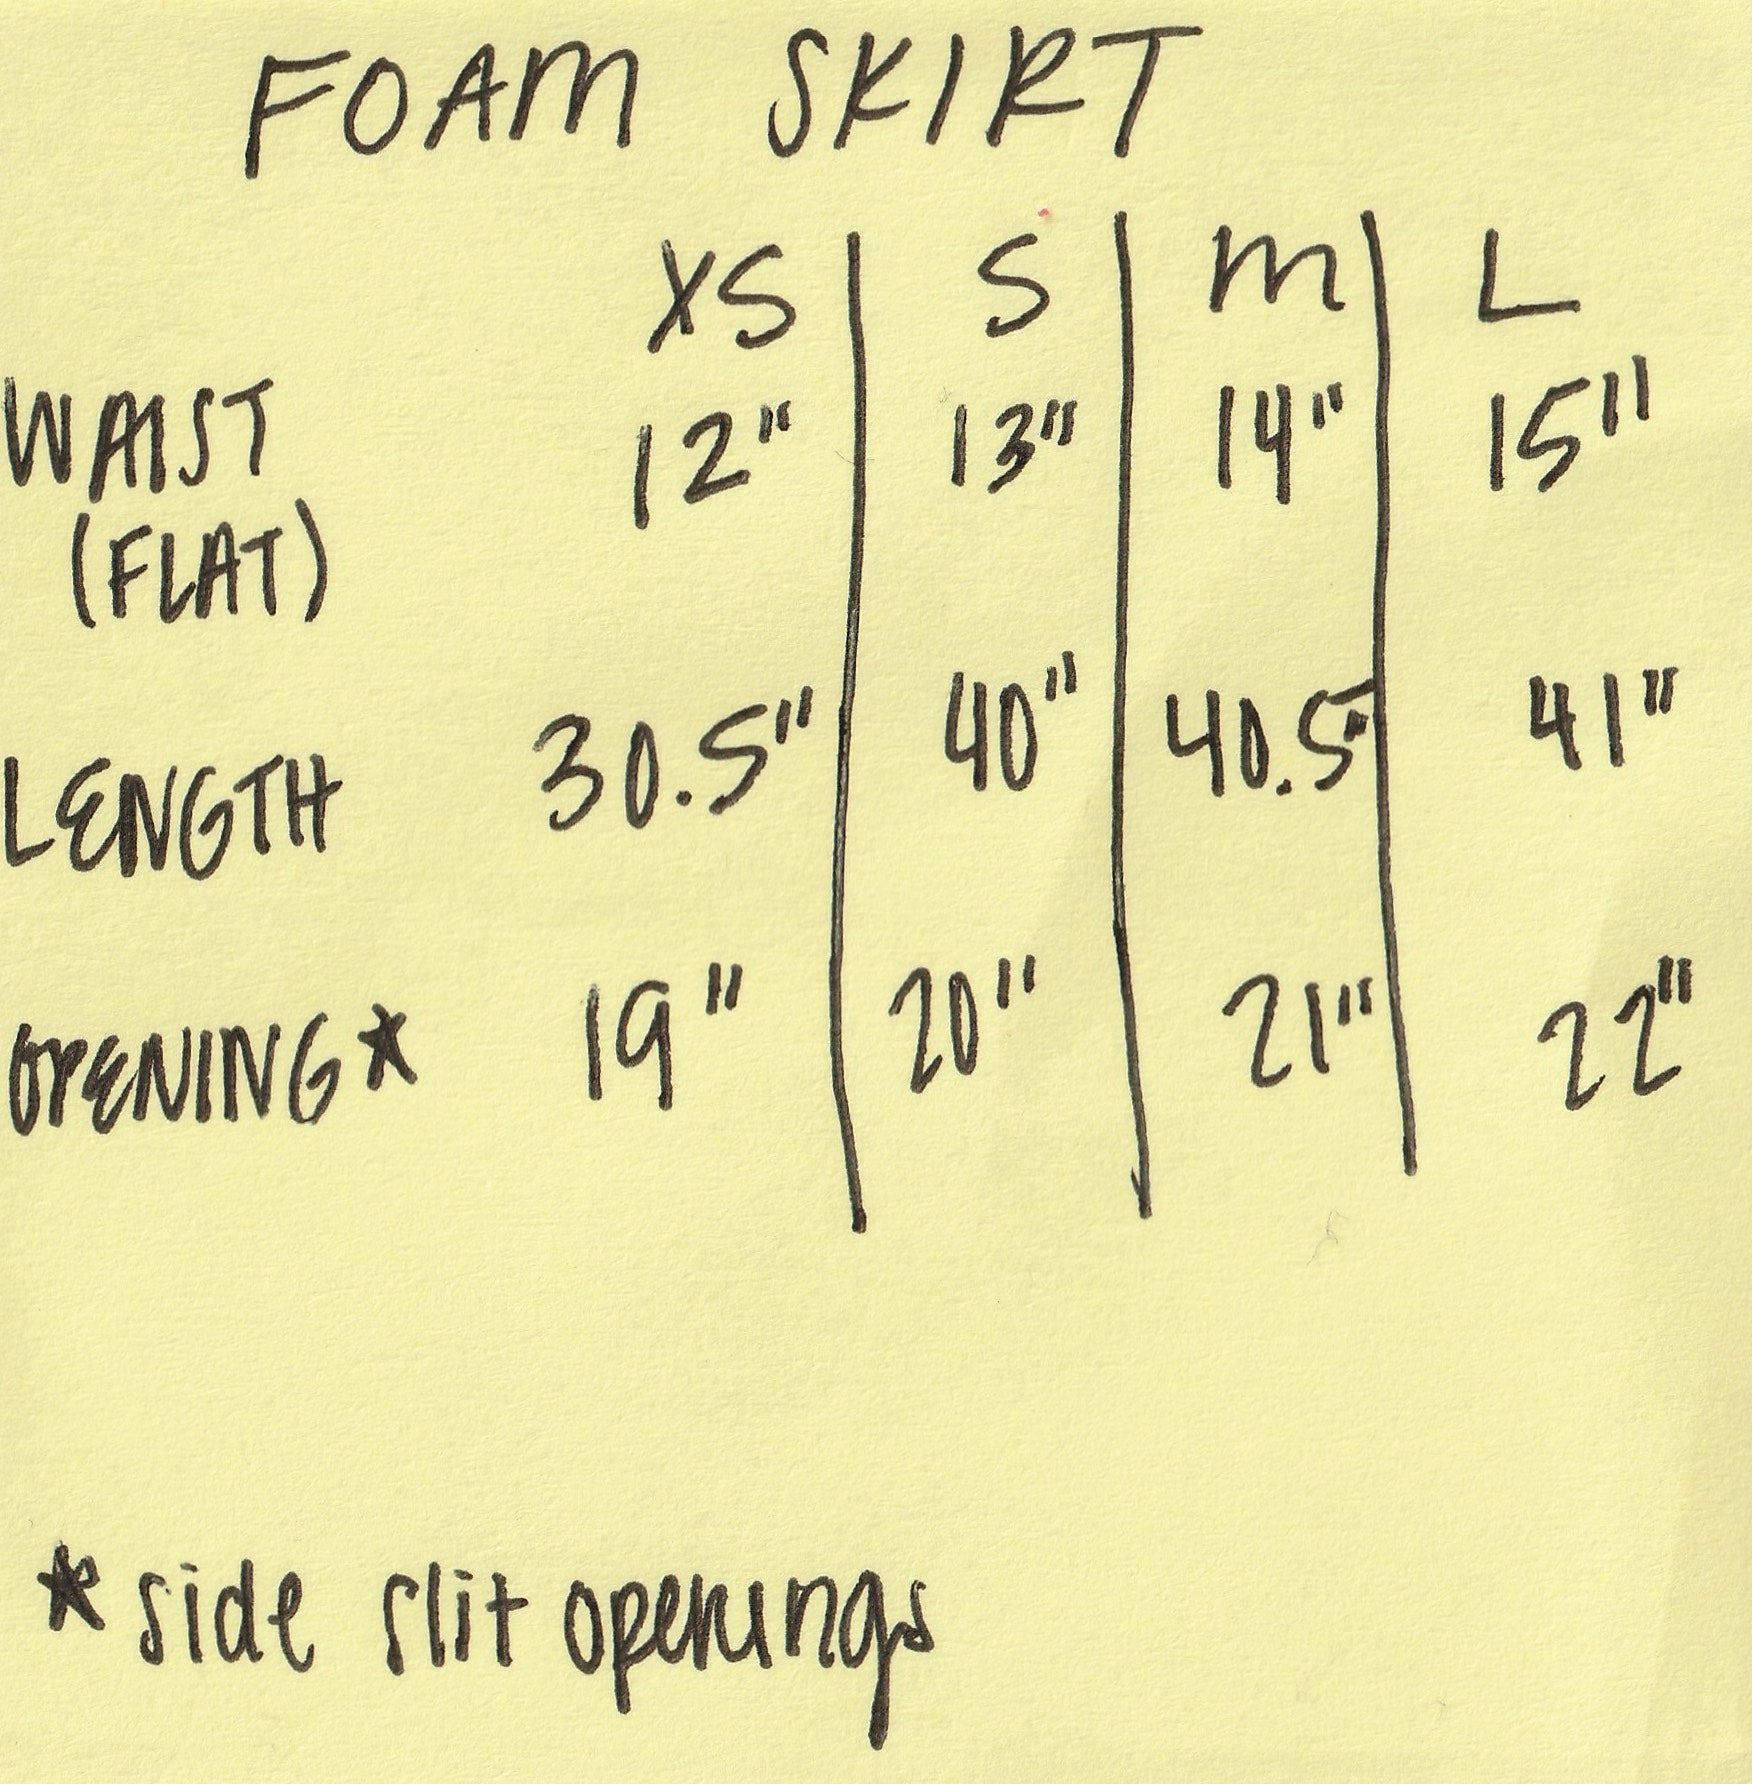 FOAM SKIRT
XS S M L
WAIST 12" 13" 14" 15"
(FLAT)
LENGTH 30.5" 40" 40.5" 41"
OPENING* 19" 20" 21" 22"
* side slit openings